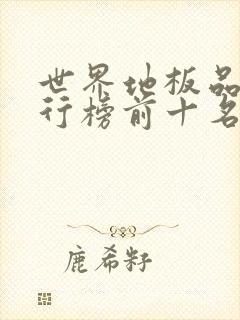 世界地板品
行榜前十名
鹿希籽